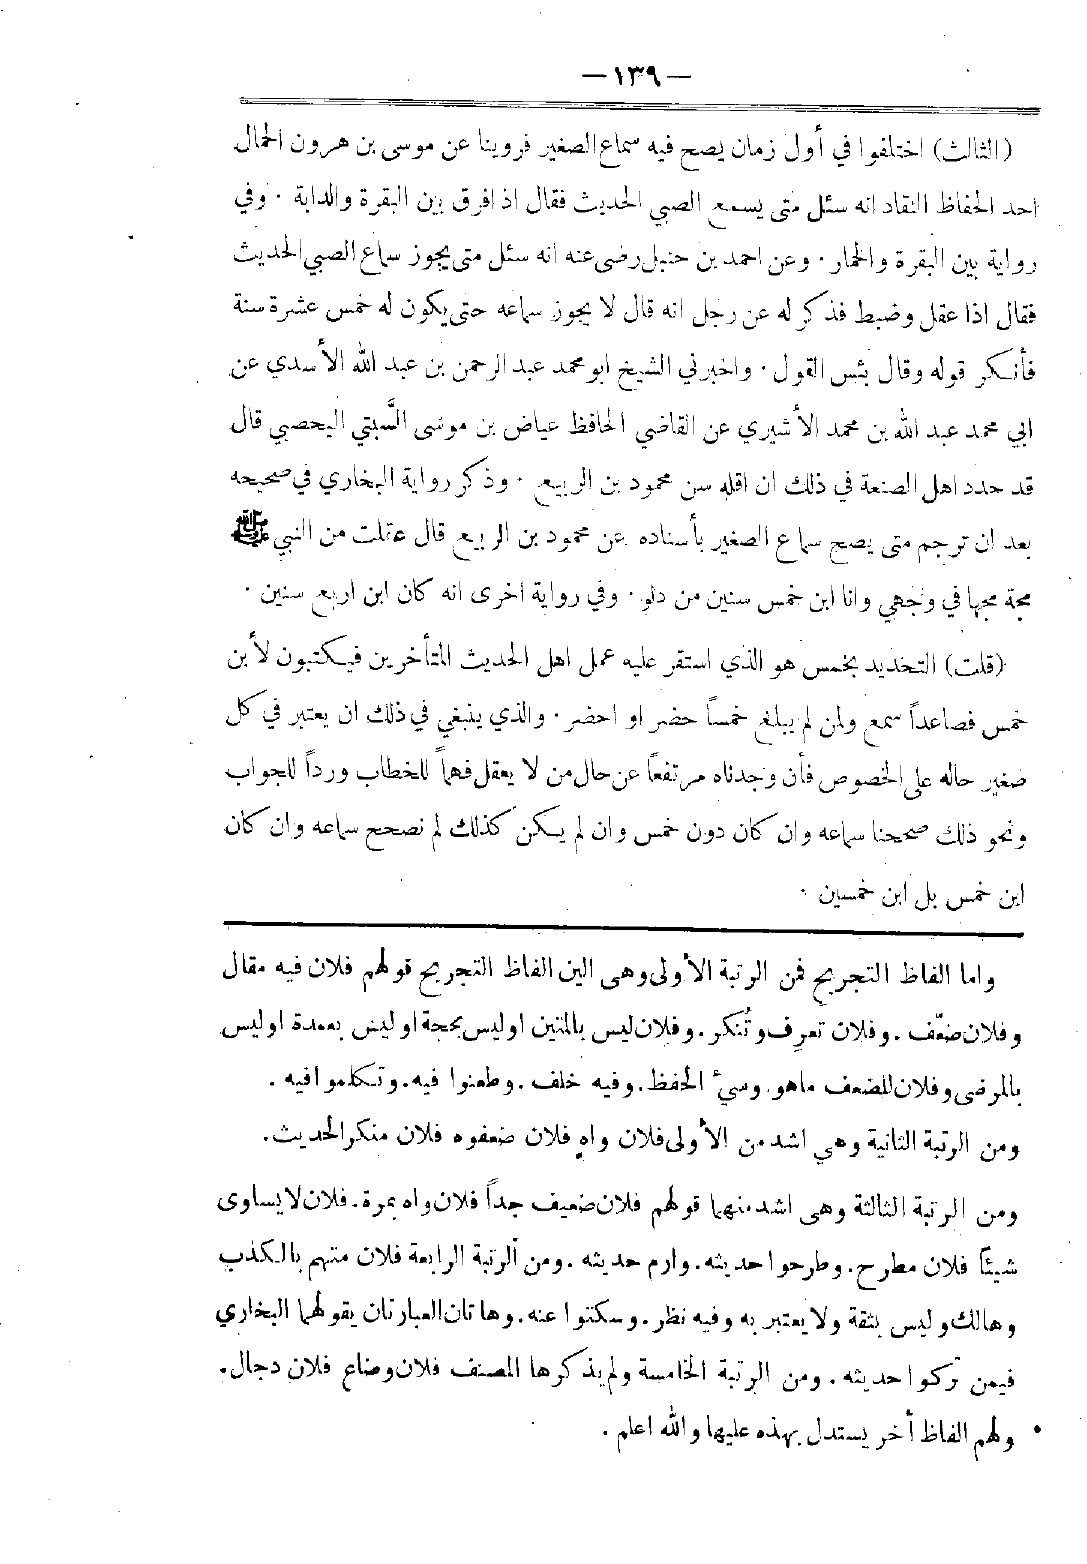 — ١٣٩ —
(الثالث) اختلفوا في أول زمان يصح فيه سماع الصغير فروينا عن موسى بن هرون الحمال
احد الحفاظ النقاد انه سئل متى يسمع الصبي الحديث فقال اذا فرق بين البقرة والدابة · وفي
رواية بين البقرة والحمار · وعن احمد بن حنبل رضى عنه انه سئل متى يجوز سماع الصبي الحديث
فقال اذا عقل وضبط فذكر له عن رجل انه قال لا يجوز سماعه حتى يكون له خمس عشرة سنة
فأنكر قوله وقال بئس القول · واخبرني الشيخ ابو محمد عبد الرحمن بن عبد الله الأسدي عن
ابي محمد عبد الله بن محمد الأشيري عن القاضي الحافظ عياض بن موسى السَّبتي اليحصبي قال
قد حدد اهل الصنعة في ذلك ان اقله سن محمود بن الربيع · وذكر رواية البخاري في صحيحه
بعد ان ترجم متى يصح سماع الصغير بأسناده عن محمود بن الربيع قال عقلت من النبي ﷺ
مجة مجها في وجهي وانا ابن خمس سنين من دلو · وفي رواية اخرى انه كان ابن اربع سنين ·
(قلت) التحديد بخمس هو الذي استقر عليه عمل اهل الحديث المتأخرين فيكتبون لأبن
خمس فصاعداً سمع ولمن لم يبلغ خمساً حضر او احضر · والذي ينبغي في ذلك ان يعتبر في كل
صغير حاله على الخصوص فأن وجدناه مرتفعاً عن حال من لا يعقل فهماً للخطاب ورداً للجواب
ونحو ذلك صححنا سماعه وان كان دون خمس وان لم يكن كذلك لم نصحح سماعه وان كان
ابن خمس بل ابن خمسين ·
واما الفاظ التجريح فمن الرتبة الأولى وهى الين الفاظ التجريح قولهم فلان فيه مقال
وفلان ضعّف . وفلان تعرف وتُنكر . وفلان ليس بالمتين اوليس بحجة اوليس بعمدة اوليس
بالمرضى وفلان للضعف ماهو . وسيء الحفظ . وفيه خلف . وطعنوا فيه . وتكلموا فيه .
ومن الرتبة الثانية وهي اشد من الأولى فلان واهٍ فلان ضعفوه فلان منكر الحديث .
ومن الرتبة الثالثة وهى اشد منهما قولهم فلان ضعيف جداً فلان واه بمرة . فلان لا يساوى
شيئاً فلان مطرح . وطرحوا حديثه . وارم حديثه . ومن الرتبة الرابعة فلان متهم بالكذب
وهالك وليس بثقة ولا يعتبر به وفيه نظر . وسكتوا عنه . وهاتان العبارتان يقولهما البخاري
فيمن تركوا حديثه . ومن الرتبة الخامسة ولم يذكرها المصنف فلان وضاع فلان دجال .
ولهم الفاظ أخر يستدل بهذه عليها والله اعلم .